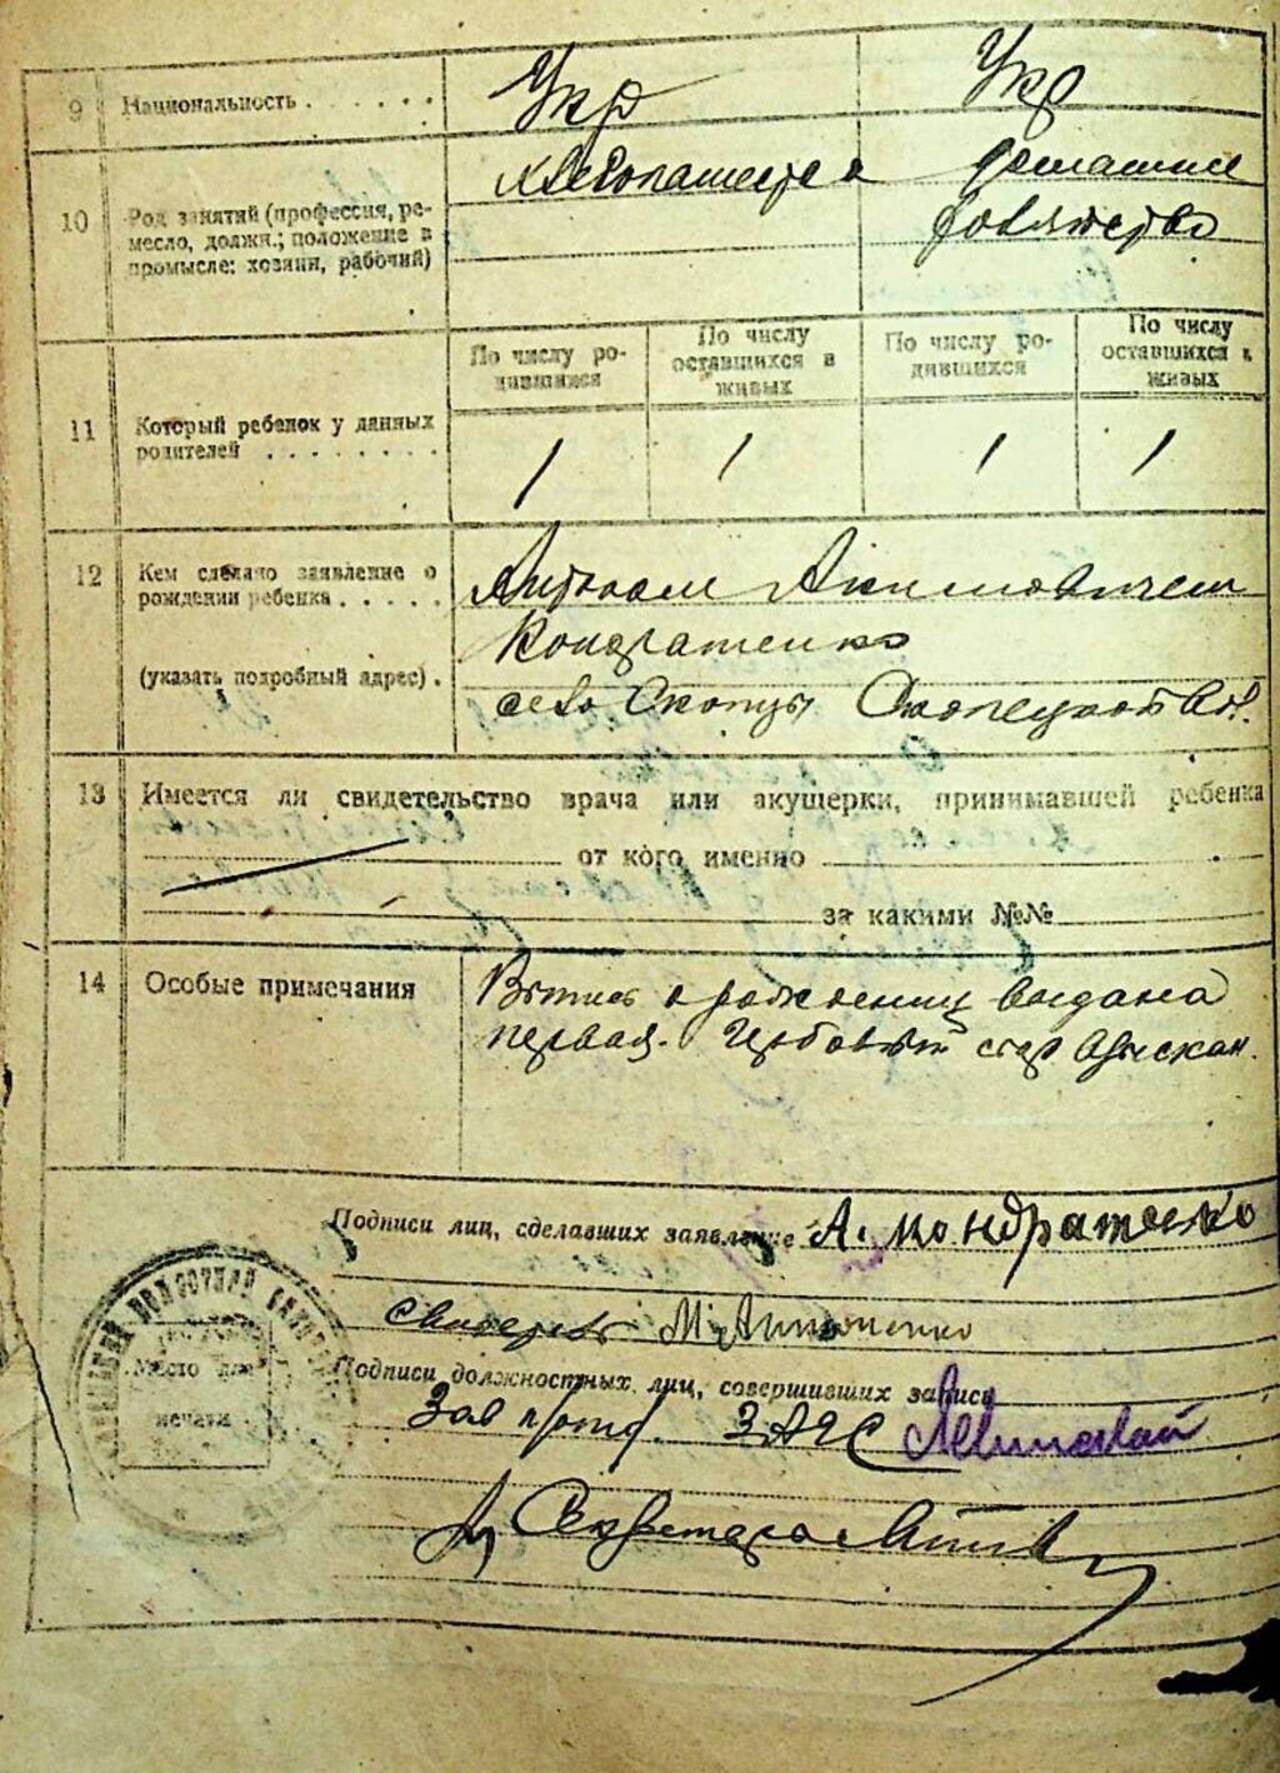 9 Национальность . . . . . . Укр Укр
10 Род занятий (профессия, ре-
месло, должн.; положение в
промысле: хозяин, рабочий)
хлебопашество домашнее
По числу ро-
дившихся
По числу
оставшихся в
живых
По числу ро-
дившихся
По числу
оставшихся в
живых
11 Который ребенок у данных
родителей . . . . . . . .
1 1 1 1
12 Кем сделано заявление о
рождении ребенка . . . . .
(указать подробный адрес) .
Акимовичем
Кондратенко
село Скопцы
13 Имеется ли свидетельство врача или акушерки, принимавшей ребенка
от кого именно
за какими №№
14 Особые примечания
о рождении выдана
первая. Гербовый сбор взыскан.
Подписи лиц, сделавших заявление А. Кондратенко
М
Место для
печати
Подписи должностных лиц, совершивших запись
Зав ЗАГС
Секретарь